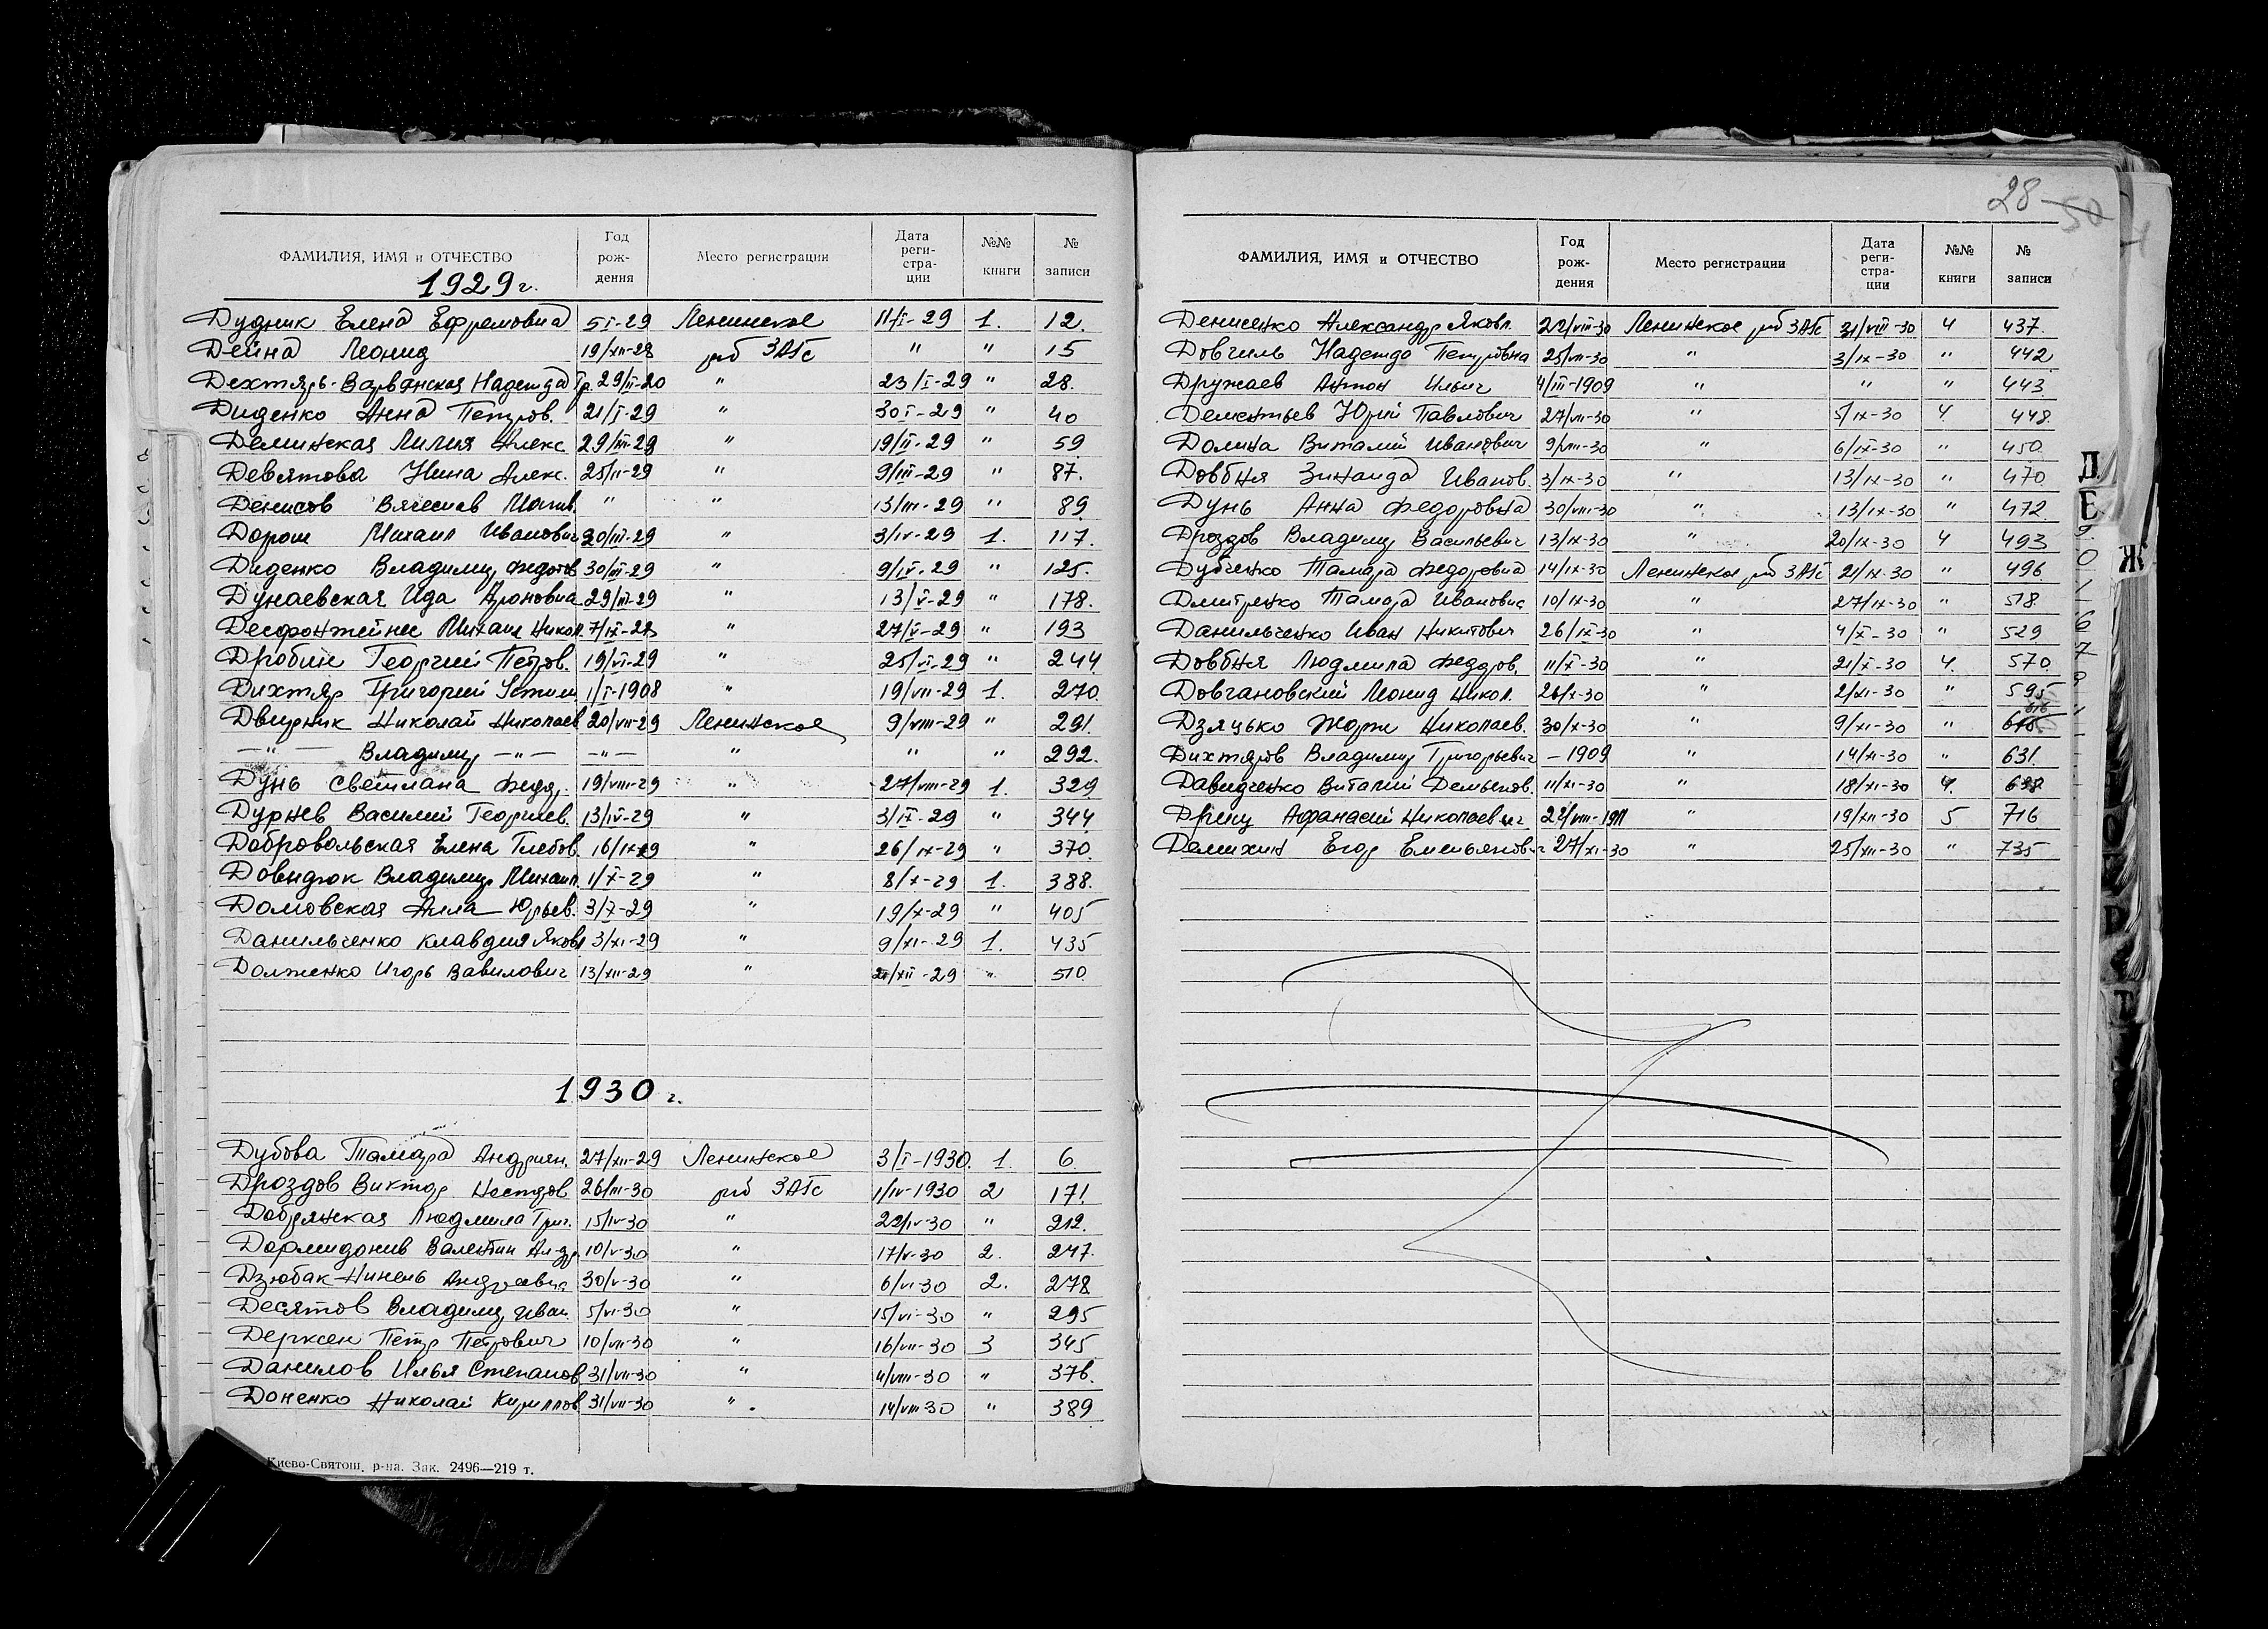 ФАМИЛИЯ, ИМЯ и ОТЧЕСТВО Год рождения Место регистрации Дата реги-стра-ции №№ книги № записи
1929 г.
Дудник Елена Ефремовна 5 I-29 Ленинское 11/I-29 1. 12.
Дейна Леонид 19/XII-28 рб ЗАГС " " 15
Дехтярь-Варванская Надежда Гр. 29/II-20 " 23/I-29 " 28.
Диденко Анна Петров. 21/I-29 " 30 I-29 " 40
Деминская Лилия Алекс. 29/III-29 " 19/II-29 " 59
Девятова Нина Алекс. 25/II-29 " 9/III-29 " 87.
Денисов Вячеслав " " 13/III-29 " 89
Дорош Михаил Иванович 20/III-29 " 3/IV-29 1. 117.
Диденко Владимир Федотов 30/III-29 " 9/IV-29 " 125.
Дунаевская Ида Ароновна 29/III-29 " 13/V-29 " 178.
Десфонтейнес Михаил Никол. 7/IX-28 " 27/V-29 " 193
Дробин Георгий Петров. 19/VI-29 " 25/VI-29 " 244
Дихтяр Григорий Устин 1/I-1908 " 19/VII-29 1. 270.
Двирник Николай Николаев 20/VII-29 Ленинское 9/VIII-29 " 291.
—"— Владимир —"— —"— " " " 292.
Дунь Светлана Федор. 19/VIII-29 " 27/VIII-29 1. 329
Дурнев Василий Георгиев. 13/IV-29 " 3/IX-29 " 344
Добровольская Елена Глебов. 16/IX-29 " 26/IX-29 " 370.
Довидюк Владимир Михаил. 1/X-29 " 8/X-29 1. 388.
Домовская Алла Юрьев. 3/X-29 " 19/X-29 " 405
Данильченко Клавдия Яковл 3/XI-29 " 9/XI-29 1. 435
Долженко Игорь Вавилович 13/XII-29 " 21/XII-29 " 510.
1930 г.
Дубова Тамара Андриян. 27/XII-29 Ленинское 3/I-1930. 1. 6.
Дроздов Виктор Нестдов 26/III-30 рб ЗАГС 1/IV-1930 2 171.
Добрянская Людмила Григ. 15/IV-30 " 22/IV-30 " 212.
Дормидонив Валентин Ал-др 10/V-30 " 17/V-30 2. 247.
Дзюбак-Нинель Андреевна 30/V-30 " 6/VI-30 2. 278
Десятов Владимир Иван. 5/VI-30 " 15/VI-30 " 295
Дерксен Петр Петрович 10/VII-30 " 16/VII-30 3 345
Данилов Илья Степанов 31/VII-30 " 4/VIII-30 " 376.
Доненко Николай Кириллов 31/VII-30 " 14/VIII 30 " 389
Киево-Святош. р-на. Зак. 2496—219 т.
28 50
ФАМИЛИЯ, ИМЯ и ОТЧЕСТВО Год рождения Место регистрации Дата реги-стра-ции №№ книги № записи
Денисенко Александр Яковл. 22/VIII-30 Ленинское рб ЗАГС 31/VIII-30 4 437.
Довгиль Надежда Петровна 25/VIII-30 " 3/IX-30 " 442
Дружаев Антон Ильич 4/III-1909 " " " 443
Дементьев Юрий Павлович 27/VIII-30 " 5/IX-30 4. 448.
Долина Виталий Иванович 9/VIII-30 " 6/IX-30 " 450.
Довбня Зинаида Иванов. 3/IX-30 " 13/IX-30 " 470.
Дунь Анна Федоровна 30/VIII-30 " 13/IX-30 " 472.
Дроздов Владимир Васильевич 13/IX-30 " 20/IX-30 4 493
Дубченко Тамара Федоровна 14/IX-30 Ленинское рб ЗАГС 21/IX-30 " 496
Дмитренко Тамара Ивановна 10/IX-30 " 27/IX-30 " 518.
Данильченко Иван Никитович 26/IX-30 " 4/X-30 " 529
Довбня Людмила Федоров. 11/X-30 " 21/X-30 4. 570.
Довгановский Леонид Никол. 26/X-30 " 2/XI-30 " 595
Дзяцько Жорж Николаев. 30/X-30 " 9/XI-30 " 616
Дихтяров Владимир Григорьевич — 1909 " 14/XI-30 " 631.
Давидченко Виталий Демьянов. 11/XI-30 " 18/XI-30 4.
Дрищ Афанасий Николаевич 22/VIII-1911 " 19/XII-30 5 716
Демихин Егор Емельянович 27/XI-30 " 25/XII-30 " 735
Д
Е
Ж